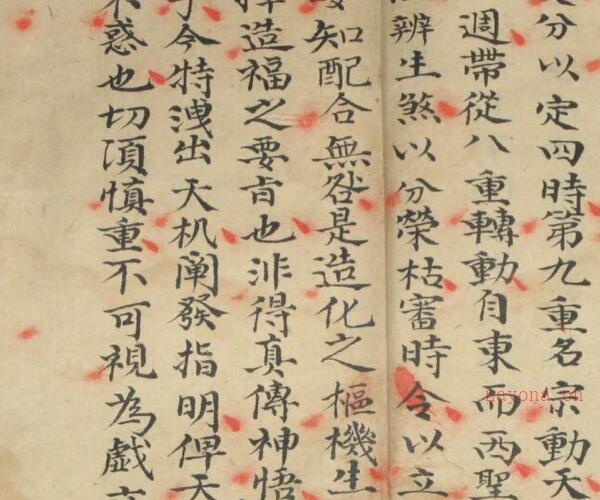 分以定四時第九重名宗動天
週帶從八重轉動自東而西聖
辨生煞以分榮枯審時令以立
知配合無咎是造化之樞機生
造福之要旨也非得真傳神悟
于今特洩出天机阐發指明俾天
惑也切須慎重不可視為戲
nayona.cn